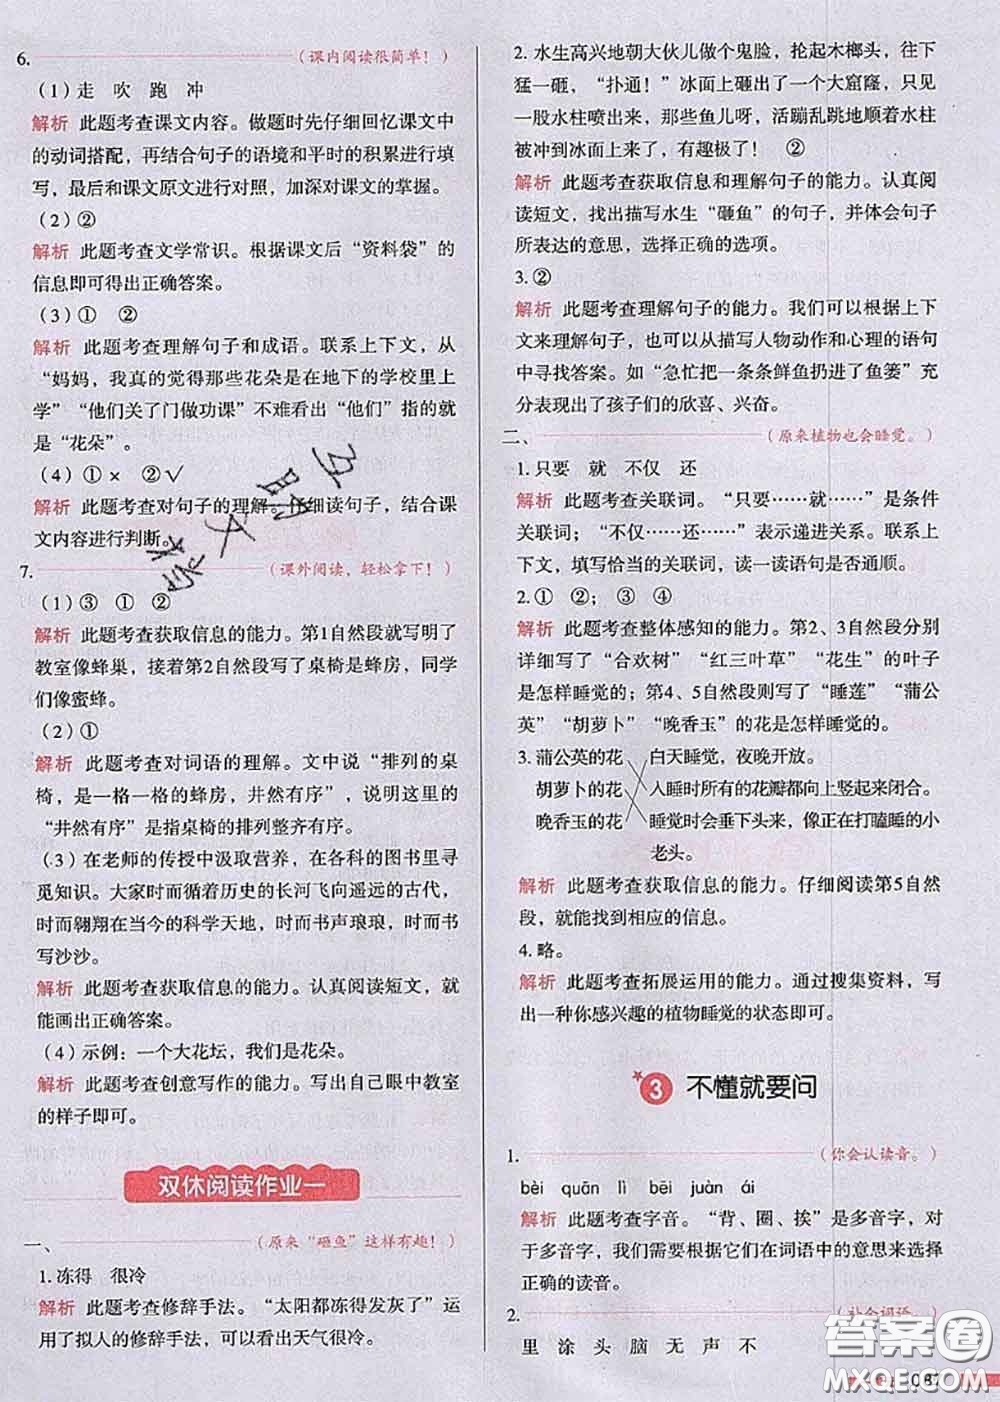 6.
（课内阅读很简单！）
（1）走 吹 跑 冲
解析 此题考查课文内容。做题时先仔细回忆课文中
的动词搭配，再结合句子的语境和平时的积累进行填
写，最后和课文原文进行对照，加深对课文的掌握。
（2）②
解析 此题考查文学常识。根据课文后“资料袋”的
信息即可得出正确答案。
（3）① ②
解析 此题考查理解句子和成语。联系上下文，从
“妈妈，我真的觉得那些花朵是在地下的学校里上
学”“他们关了门做功课”不难看出“他们”指的就
是“花朵”。
（4）①× ②√
解析 此题考查对句子的理解。仔细读句子，结合课
文内容进行判断。
7.
（课外阅读，轻松拿下！）
（1）③ ① ②
解析 此题考查获取信息的能力。第1自然段写明了
教室像蜂巢，接着第2自然段写了桌椅是蜂房，同学
们像蜜蜂。
（2）①
解析 此题考查对词语的理解。文中说“排列的桌
椅，是一格一格的蜂房，井然有序”，说明这里的
“井然有序”是指桌椅的排列整齐有序。
（3）在老师的传授中汲取营养，在各科的图书里寻
觅知识。大家时而循着历史的长河飞向遥远的古代，
时而翱翔在当今的科学天地，时而书声琅琅，时而书
写沙沙。
解析 此题考查获取信息的能力。认真阅读短文，就
能画出正确答案。
（4）示例：一个大花坛，我们是花朵。
解析 此题考查创意写作的能力。写出自己眼中教室
的样子即可。
双休阅读作业一
一、
（原来“砸鱼”这样有趣！）
1.冻得 很冷
解析 此题考查修辞手法。“太阳都冻得发灰了”运
用了拟人的修辞手法，可以看出天气很冷。
2.水生高兴地朝大伙儿做个鬼脸，抡起木榔头，往下
猛一砸，“扑通！”冰面上砸出了一个大窟窿，只见
一股水柱喷出来，那些鱼儿呀，活蹦乱跳地随着水柱
被冲到冰面上来，有趣极了！ ②
解析 此题考查获取信息和理解句子的能力。认真阅
读短文，找出描写水生“砸鱼”的句子，并理解句子
所表达的意思，选择正确的选项。
3.②
解析 此题考查理解句子的能力。我们可以根据上下
文来理解句子，尤其可以从描写人物动作和心理的语句
中寻找答案。如“急忙把一条条鲜鱼扔进了鱼篓”充
分表现出了孩子们的欣喜、兴奋。
二、
（原来植物也会睡觉。）
1.只要 就 不仅 还
解析 此题考查关联词。“只要……就……”是条件
关联词；“不仅……还……”表示递进关系。联系上
下文，填写恰当的关联词，读一读语句是否通顺。
2.① ②；③ ④
解析 此题考查整体感知的能力。第2、3自然段分别
详细写了“合欢树”“红三叶草”“花生”的叶子
是怎样睡觉的；第4、5自然段则写了“睡莲”“蒲公
英”“胡萝卜”“晚香玉”的花是怎样睡觉的。
3.蒲公英的花 白天睡觉，夜晚开放。
胡萝卜的花 入睡时所有的花瓣都向上竖起来闭合。
晚香玉的花 睡觉时会垂下头来，像正在打瞌睡的小
老头。
解析 此题考查获取信息的能力。仔细阅读第5自然
段，就能找到相应的信息。
4.略。
解析 此题考查拓展运用的能力。通过搜集资料，写
出一种你感兴趣的植物睡觉的状态即可。
3 不懂就要问
1.
（你会认读音。）
bèi quān lì bēi juàn ái
解析 此题考查字音。“背、圈、挨”是多音字，对
于多音字，我们需要根据它在词语中的意思来选择
正确的读音。
2.
（补全词语。）
里 涂 头 脑 无 声 不
答案圈
MXQE.COM